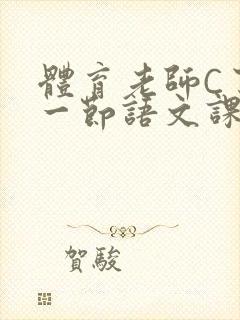 體育老師C
一節語文課
賀駿